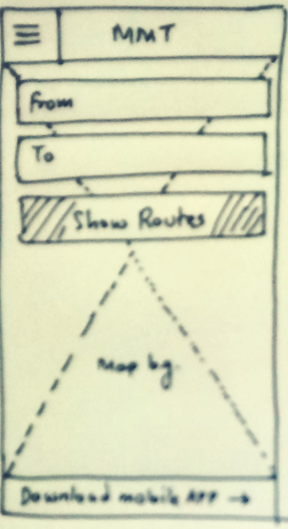 MMT
From
To
Show Routes
Map bg.
Download mobile APP →